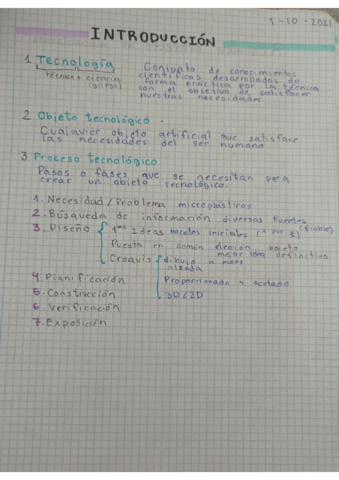 1-10-2021
INTRODUCCIÓN
1. Tecnología
técnica + ciencia
Conjunto de conocimientos
científicos desarrollados de
forma práctica por la técnica
con el objetivo de satisfacer
nuestras necesidades.
2. Objeto tecnológico.
Cualquier objeto artificial que satisface
las necesidades del ser humano
3. Proceso tecnológico
Pasos o fases que se necesitan para
crear un objeto tecnológico.
1. Necesidad / Problema microplásticos
2. Búsqueda de información diversas fuentes
(fiable)
3. Diseño
1ªˢ Ideas bocetos iniciales
Puesta en común elección boceto
mejor idea definitivo
Croquis
dibujo a mano
alzada
Proporcionado y acotado
3D/2D
4. Planificación
5. Construcción
6. Verificación
7. Exposición